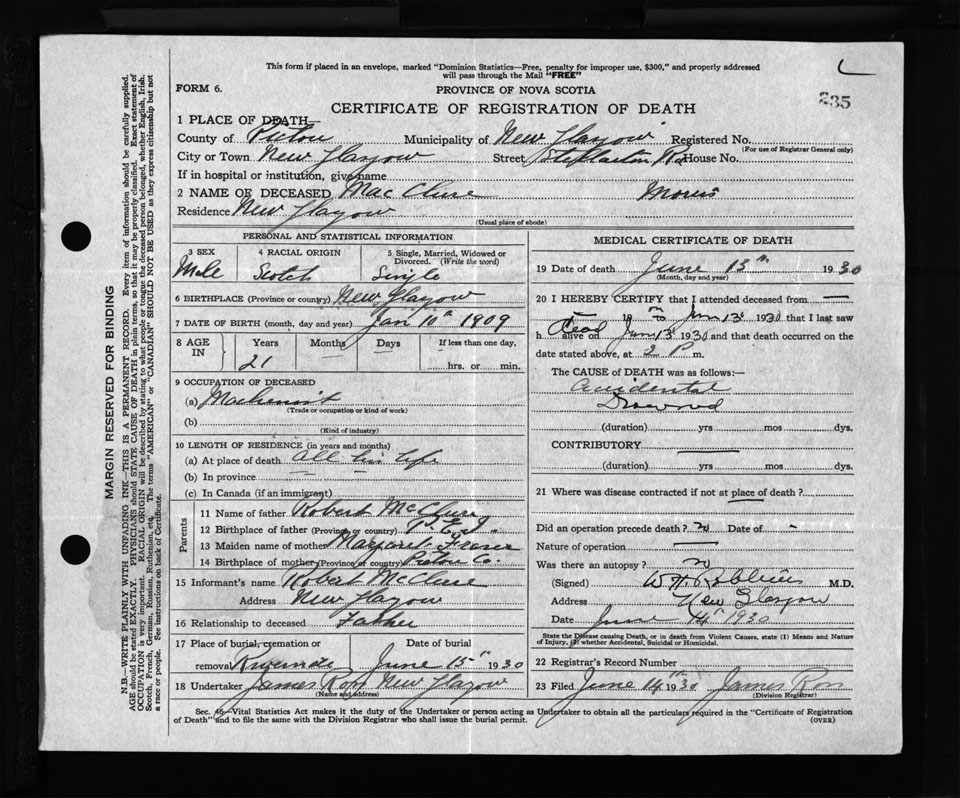 This form if placed in an envelope, marked "Dominion Statistics—Free, penalty for improper use, $300," and properly addressed
will pass through the Mail "FREE"
FORM 6.
PROVINCE OF NOVA SCOTIA
235
CERTIFICATE OF REGISTRATION OF DEATH
1 PLACE OF DEATH—
County of Pictou Municipality of New Glasgow Registered No.
(For use of Registrar General only)
City or Town New Glasgow Street, Stellarton Rd House No.
If in hospital or institution, give name
2 NAME OF DECEASED Mac Clure Morris
Residence New Glasgow
(Usual place of abode)
PERSONAL AND STATISTICAL INFORMATION
3 SEX 4 RACIAL ORIGIN 5 Single, Married, Widowed or Divorced. (Write the word)
Male Scotch Single
6 BIRTHPLACE (Province or country) New Glasgow
7 DATE OF BIRTH (month, day and year) Jan 10th 1909
8 AGE IN Years Months Days If less than one day,
21 hrs. or min.
9 OCCUPATION OF DECEASED
(a) Machinist
(Trade or occupation or kind of work)
(b)
(Kind of industry)
10 LENGTH OF RESIDENCE (in years and months)
(a) At place of death All his life
(b) In province
(c) In Canada (if an immigrant)
Parents
11 Name of father Robert McClure
12 Birthplace of father (Province or country) P.E.I.
13 Maiden name of mother Margaret Fraser
14 Birthplace of mother (Province or country) Pictou Co.
15 Informant's name Robert McClure
Address New Glasgow
16 Relationship to deceased Father
17 Place of burial, cremation or Date of burial
removal Riverside June 15th 1930
18 Undertaker James Ross New Glasgow
(Name and address)
MEDICAL CERTIFICATE OF DEATH
19 Date of death June 13th 1930
(Month, day and year)
20 I HEREBY CERTIFY that I attended deceased from —
— 19 to Jun 13 1930 that I last saw
h dead alive on Jun 13 1930 and that death occurred on the
date stated above, at 2 P m.
The CAUSE OF DEATH was as follows:—
Accidental
Drowned
(duration) yrs mos dys.
CONTRIBUTORY
(duration) yrs mos dys.
21 Where was disease contracted if not at place of death?
Did an operation precede death? no Date of -
Nature of operation —
Was there an autopsy? no
(Signed) W. H. Robbins M.D.
Address New Glasgow
Date June 14th 1930
State the Disease causing Death, or in death from Violent Causes, state (1) Means and Nature
of Injury, (2) whether Accidental, Suicidal or Homicidal.
22 Registrar's Record Number
23 Filed June 14th 1930 James Ross
(Division Registrar)
Sec. 46—Vital Statistics Act makes it the duty of the Undertaker or person acting as Undertaker to obtain all the particulars required in the "Certificate of Registration
of Death" and to file the same with the Division Registrar who shall issue the burial permit.
(OVER)
MARGIN RESERVED FOR BINDING
N.B.—WRITE PLAINLY WITH UNFADING INK—THIS IS A PERMANENT RECORD. Every item of information should be carefully supplied.
AGE should be stated EXACTLY. PHYSICIANS should STATE CAUSE OF DEATH in plain terms, so that it may be properly classified. Exact statement of
OCCUPATION is very important. RACIAL ORIGIN will be described by stating to what people or tongue the deceased person belonged, whether English, Irish,
Scotch, French, German, Russian, Ruthenian, etc. The terms "AMERICAN" or "CANADIAN" SHOULD NOT BE USED as they express citizenship but not
a race or people. See instructions on back of Certificate.